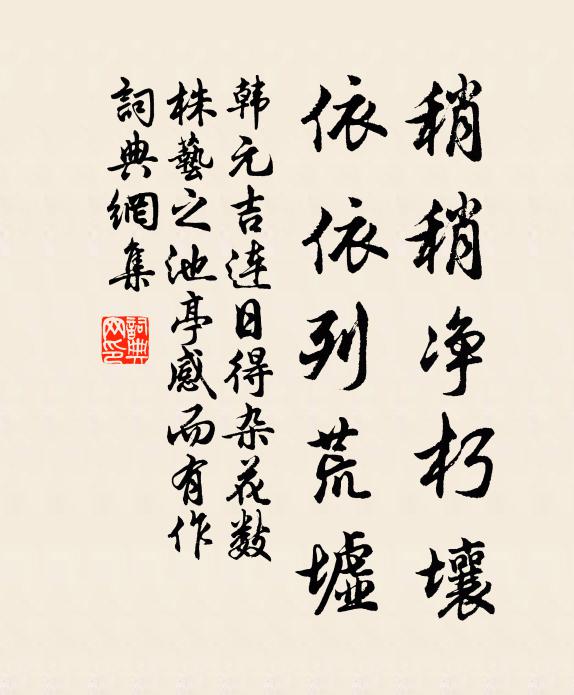 稍稍净朽壤
依依列荒墟
韩元吉连日得杂花数
株艺之池亭感而有作
词典網集
詞典网印